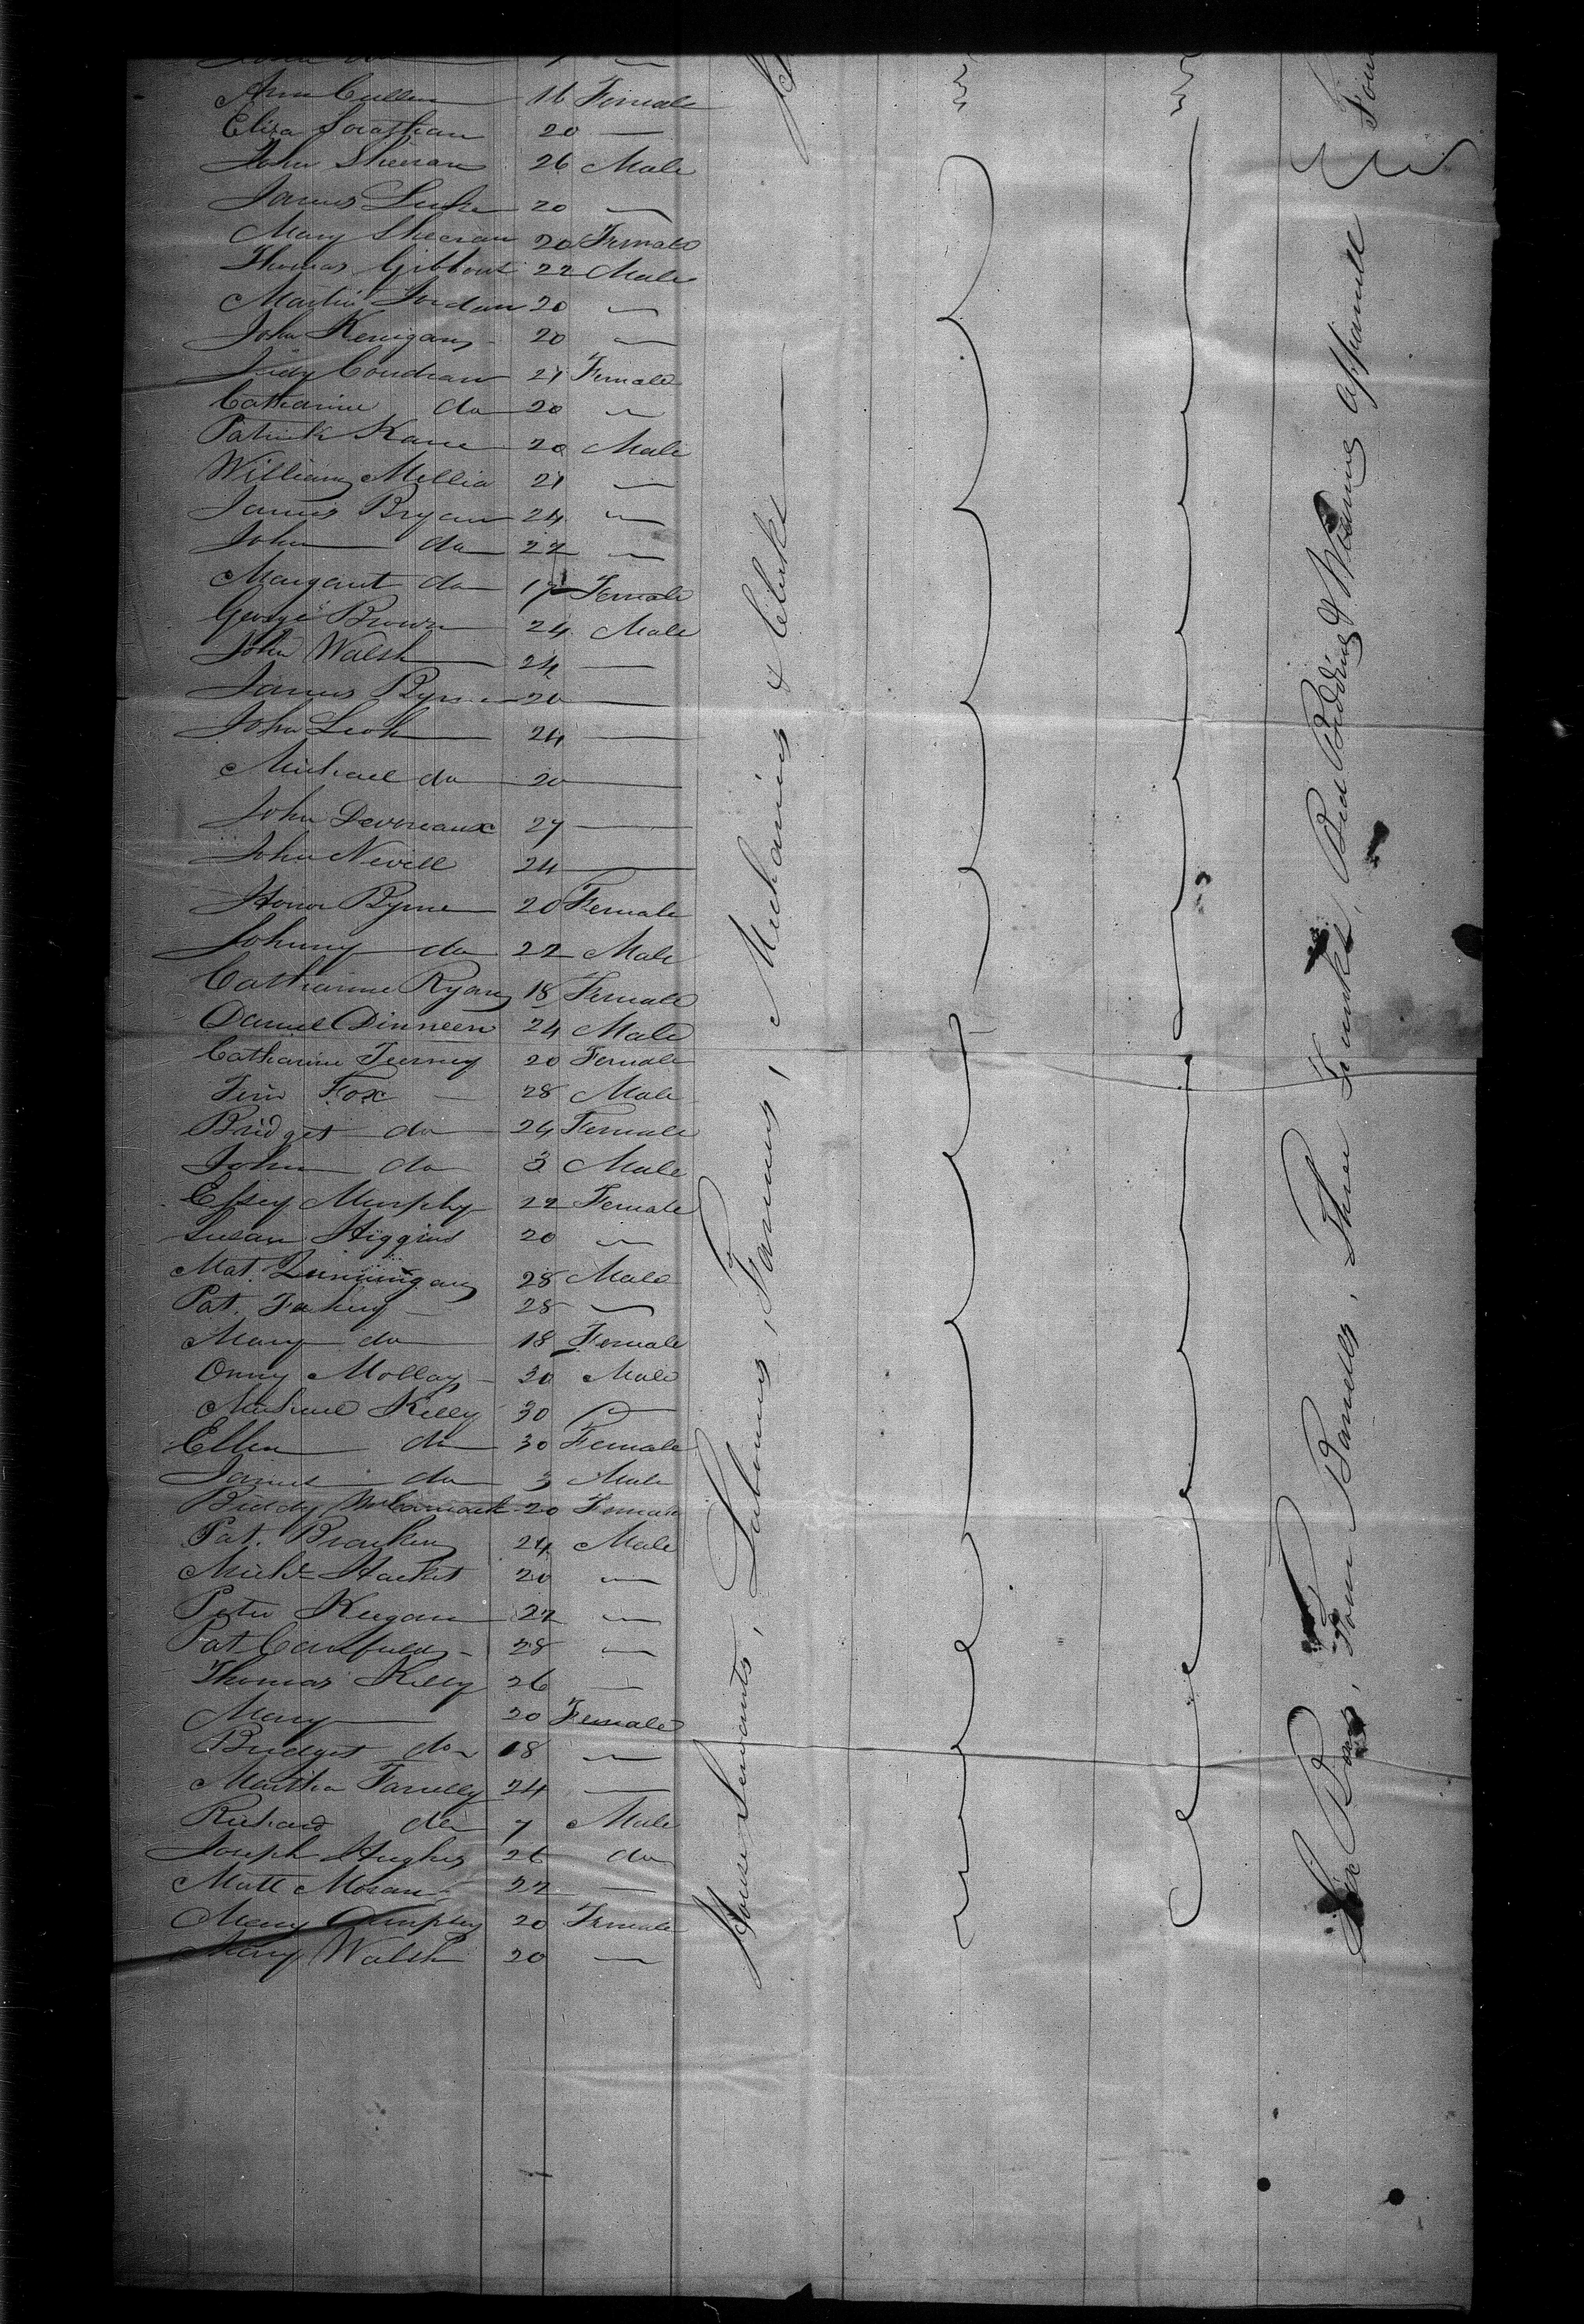 Ann Cullen 16 Female
Eliza 20 —
John Sheeran 26 Male
James 20 —
Mary Sheeran 20 Female
Thomas Gibbons 22 Male
Martin Jordan 20 —
John Kerrigan 20 —
Judy Condran 21 Female
Catharine do 20 —
Patrick Kane 20 Male
William Mellia 21 —
James Bryan 24 —
John do 22 —
Margaret do 17 Female
George Brown 24 Male
John Walsh 24 —
James Byrne 20 —
John 24 —
Michael do 20 —
John Devereaux 27 —
John Nevill 24 —
Honor Byrne 20 Female
Johnny do 22 Male
Catharine Ryan 18 Female
Daniel Dinneen 24 Male
Catharine Tierney 20 Female
Tim Fox — 28 Male
Bridget do 24 Female
John do 3 Male
Essey Murphy 22 Female
Susan Higgins 20 —
Mat. 28 Male
Pat. Fahey — 28 —
Mary do 18 Female
Onny Molloy — 30 Male
Michael Kelly 30 —
Ellen do 30 Female
James do 3 Male
Biddy McCormack 20 Female
Pat. Bracken 24 Male
Michl Hacket 20 —
Peter Keegan 22 —
Pat Canfield — 28 —
Thomas Kelly 26 —
Mary — 20 Female
Bridget do 18 —
Martha Farrelly 24 —
Richard do 7 Male
Joseph Hughes 26 do
Matt Moran 22 —
Mary 20 Female
Mary Walsh 20 —
House Servants, Labourers, Farmers, Mechanics & Clerks
Six Boxes, Four Barrells, Three Trunks, Bed Bedding & Wearing apparell
Four